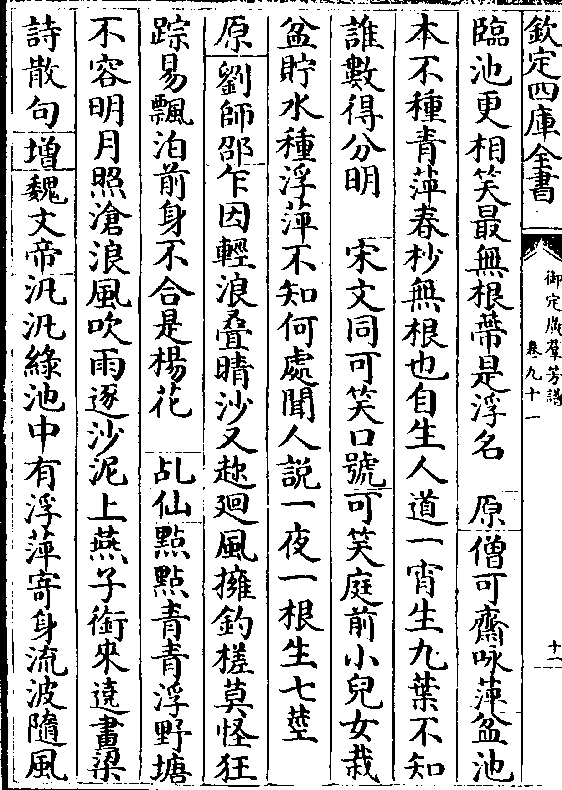 欽定四庫全書
御定廣羣芳譜
卷九十一
十二
臨池更相笑最無根蔕是浮名　原僧可齋咏萍盆池
本不種青萍春杪無根也自生人道一宵生九葉不知
誰數得分明　宋文同可笑口號可笑庭前小兒女栽
盆貯水種浮萍不知何處聞人說一夜一根生七莖
原劉師邵乍因輕浪叠晴沙又趂廻風擁釣槎莫怪狂
踪易飄泊前身不合是楊花　乩仙點點青青浮野塘
不容明月照滄浪風吹雨逐沙泥上燕子銜來遶畫梁
詩散句增魏文帝汎汎綠池中有浮萍寄身流波隨風